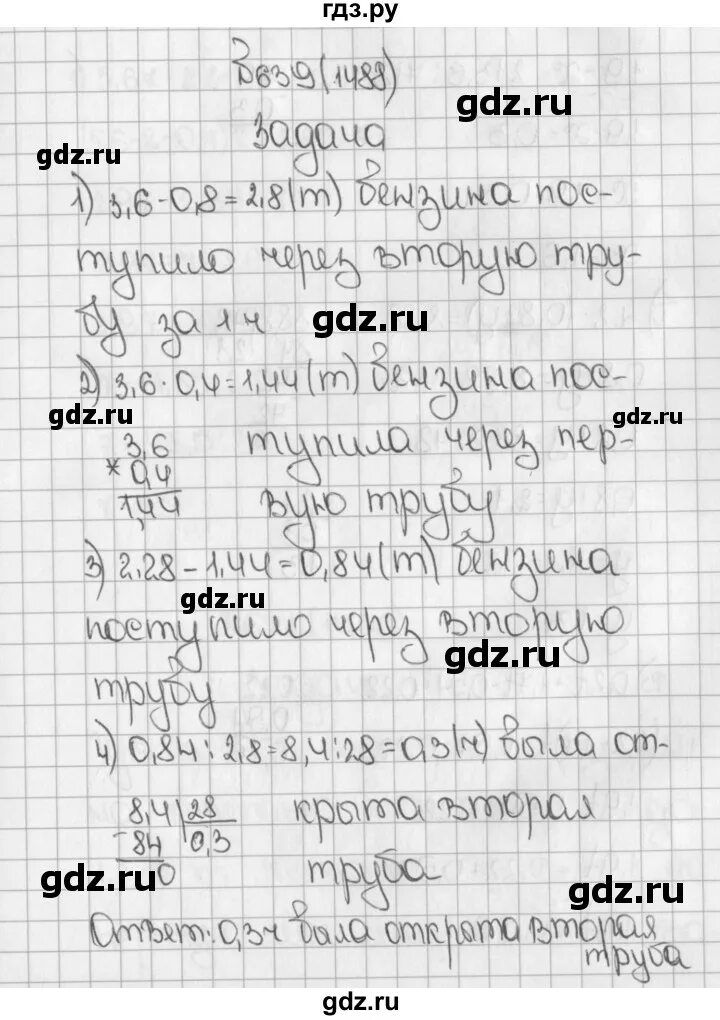 гдз.ру
№639 (1488)
gdz.ru
Задача
gdz.ru
1) 3,6-0,8=2,8(т) бензина пос-
тупило через вторую тру-
бу за 1ч
gdz.ru
2) 3,6·0,4=1,44(т) бензина пос-
gdz.ru
gdz.ru
3,6 тупила через пер-
*0,4
1,44 вую трубу
3) 2,28-1,44=0,84(т) бензина
gdz.ru
поступило через вторую
gdz.ru
трубу
4) 0,84:2,8=8,4:28=0,3(ч) была от-
8,4 28 крыта вторая
-84 0,3
0 труба
gdz.ru
gdz.ru
Ответ: 0,3ч была открыта вторая
труба
gdz.ru